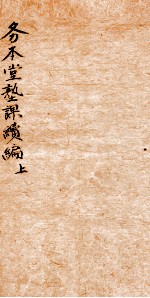 務本堂塾課續編上